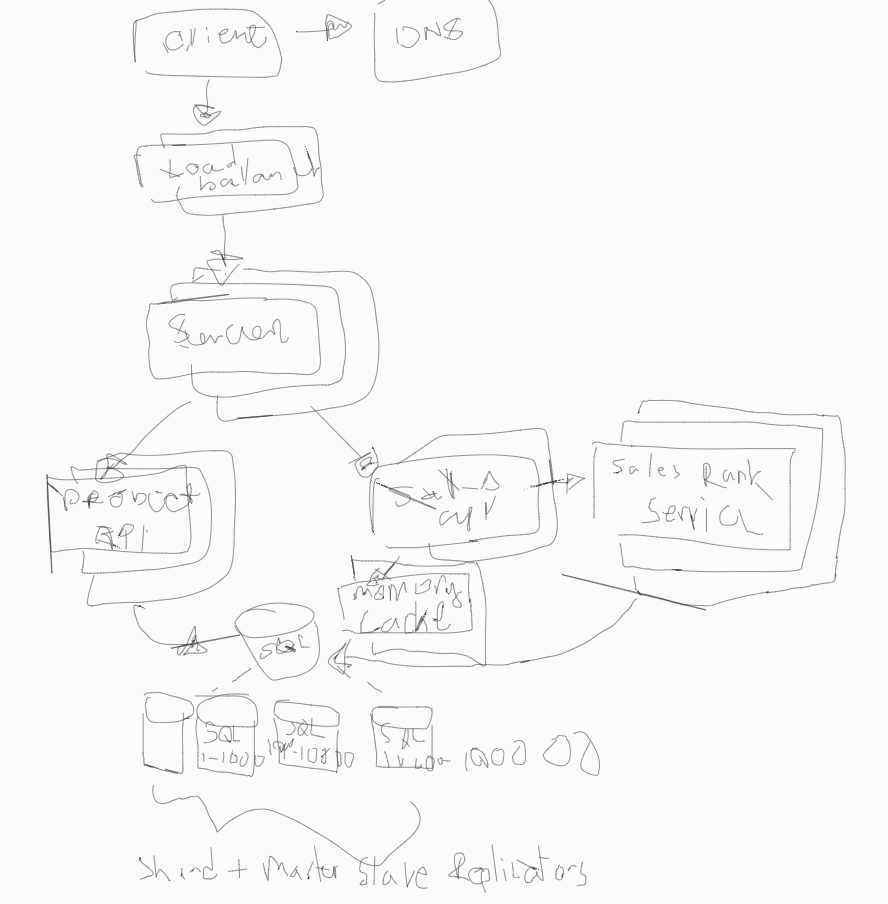 Client
DNS
Load
balan
Server
Product
API
Sales
api
Sales Rank
Service
memory
cache
SQL
SQL
1-1000
SQL
SQL
Shard + Master Slave Replicators